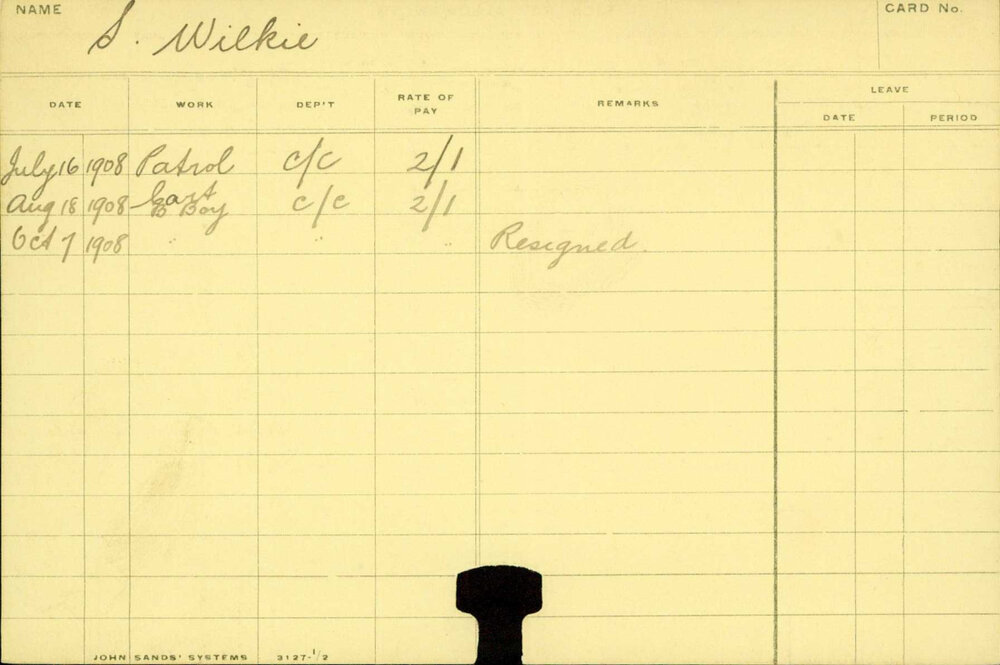 NAME S. Wilkie CARD No.
DATE WORK DEP'T RATE OF PAY REMARKS LEAVE
DATE PERIOD
July 16 1908 Patrol c/c 2/1
Aug 18 1908 Boy c/c 2/1
Oct 7 1908 " " Resigned.
JOHN SANDS' SYSTEMS 3127-1/2